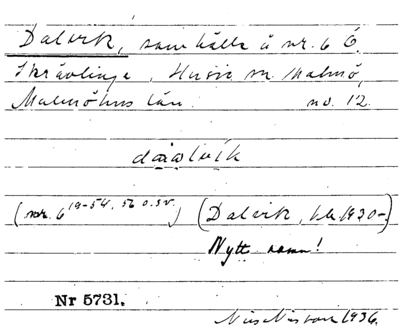 Dalvik, samhälle å nr. 6 Ö.
Skrävlinge, Husie sn. Malmö,
Malmöhus län. no. 12.
(nr. 6 19-54, 56 o.sv.) (Dalvik, bl. 1920-.)
Nytt namn!
Nr 5731.
Nils Nilsson 1936.